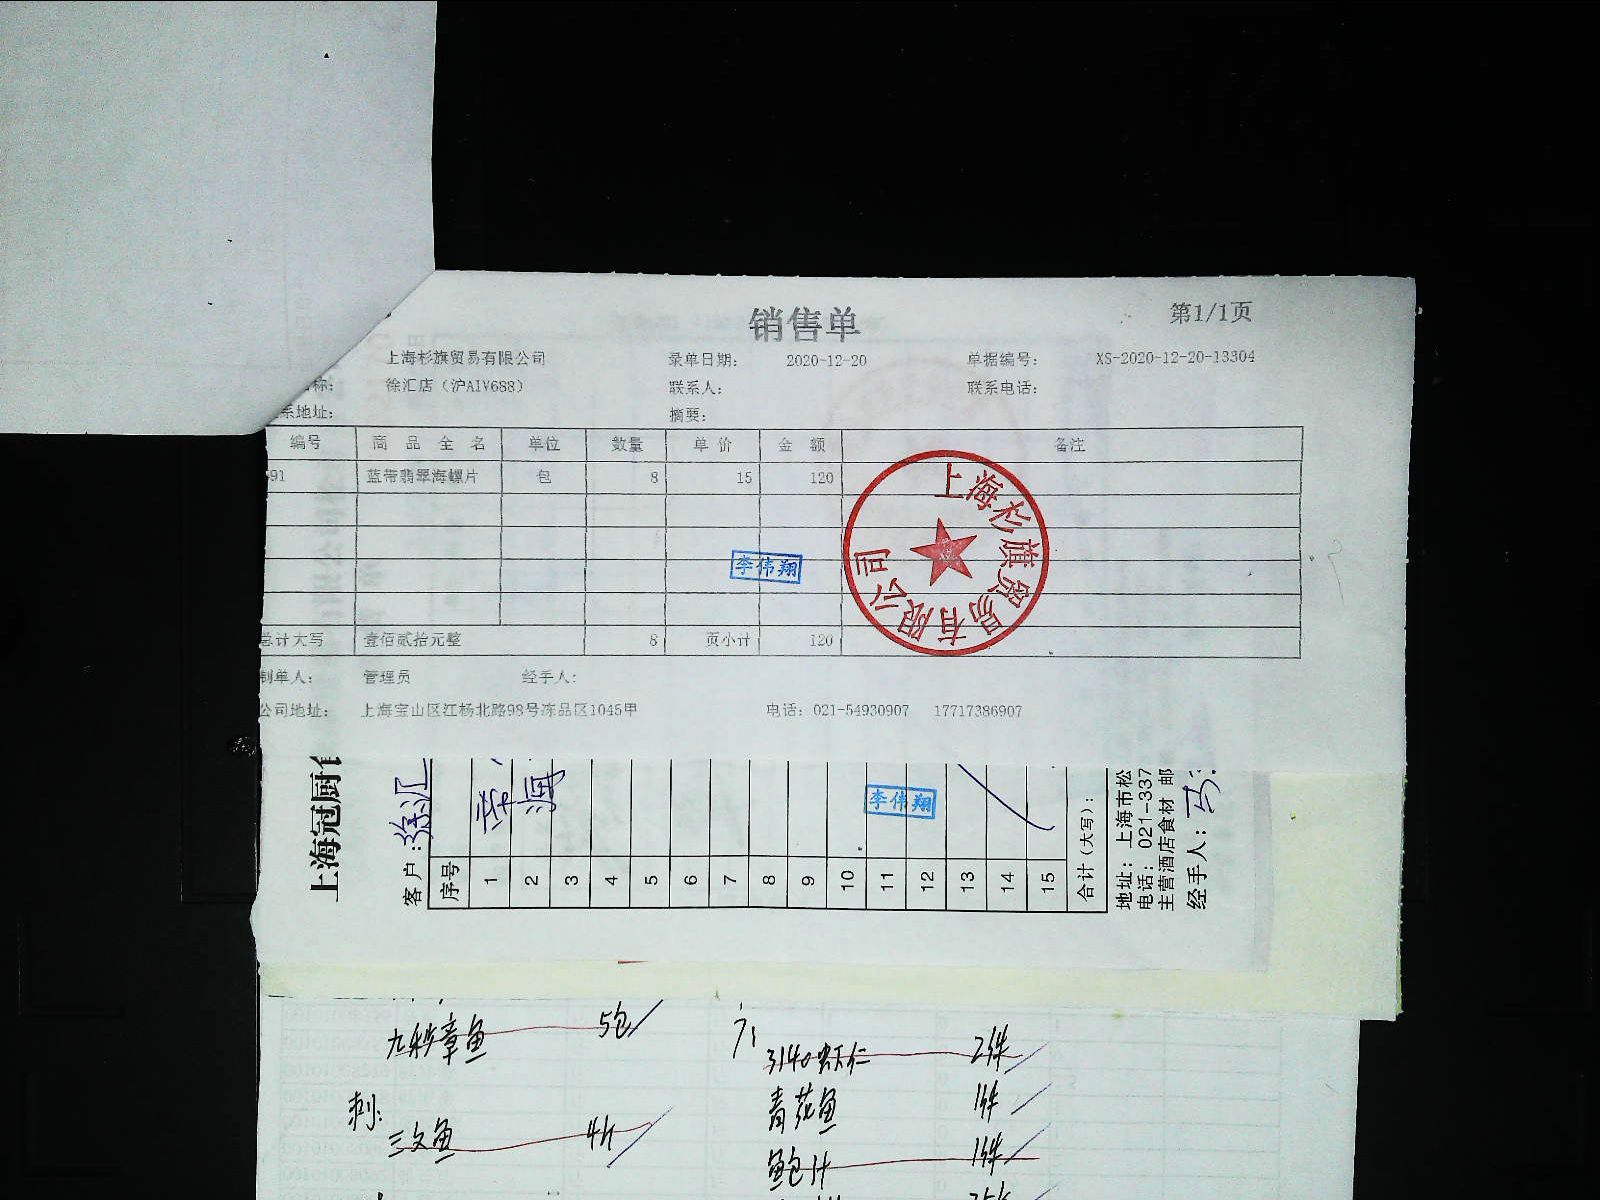 销售单
第1/1页
上海杉旗贸易有限公司 录单日期: 2020-12-20 单据编号: XS-2020-12-20-13304
称: 徐汇店（沪AIV688） 联系人: 联系电话:
系地址: 摘要:
编号 商品全名 单位 数量 单价 金额 备注
91 蓝带翡翠海螺片 包 8 15 120
李伟翔
上海杉旗贸易有限公司
总计大写 壹佰贰拾元整 8 页小计 120
制单人: 管理员 经手人:
公司地址: 上海宝山区江杨北路98号冻品区1045甲 电话: 021-54930907 17717386907
上海冠厨
客户: 徐汇
序号 1 2 3 4 5 6 7 8 9 10 11 12 13 14 15
李伟翔
合计（大写）:
地址: 上海市松
电话: 021-337
主营酒店食材 邮
经手人:
九秒章鱼 5包
3140虾仁 2件
刺:
青花鱼 1件
三文鱼 4片
鲍汁 1件